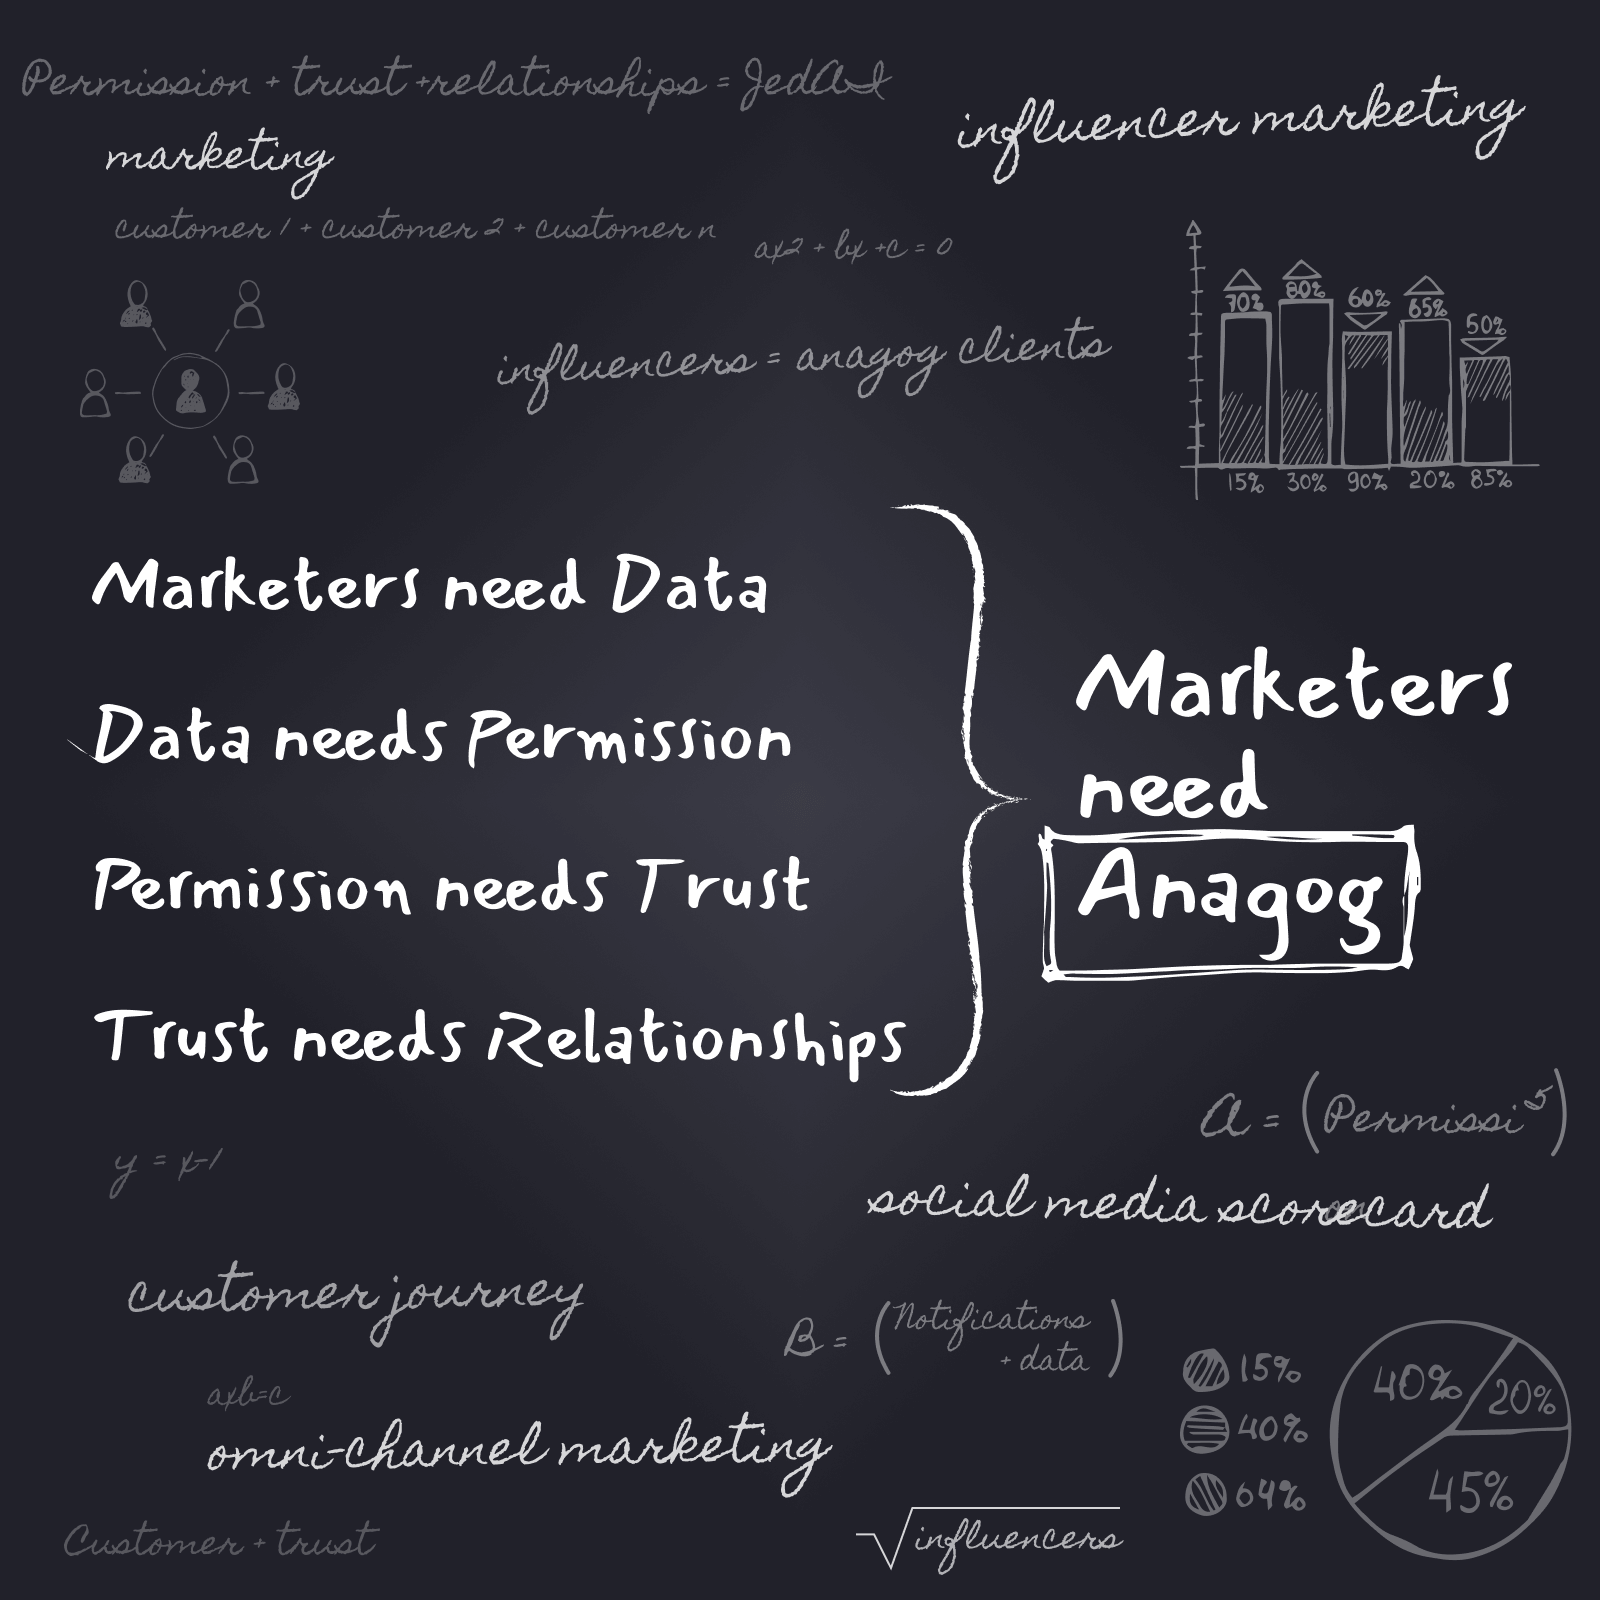 Permission + trust + relationships = JedAI
influencer marketing
marketing
customer 1 + customer 2 + customer n
ax2 + bx + c = 0
influencers = anagog clients
70%
80%
60%
65%
50%
15%
30%
90%
20%
85%
Marketers need Data
Data needs Permission
Permission needs Trust
Trust needs Relationships
Marketers
need
Anagog
A = (Permissi⁵)
y = x-1
social media scorecard
customer journey
B = (Notifications
+ data)
15%
40%
64%
40%
20%
45%
axb=c
omni-channel marketing
Customer + trust
√influencers